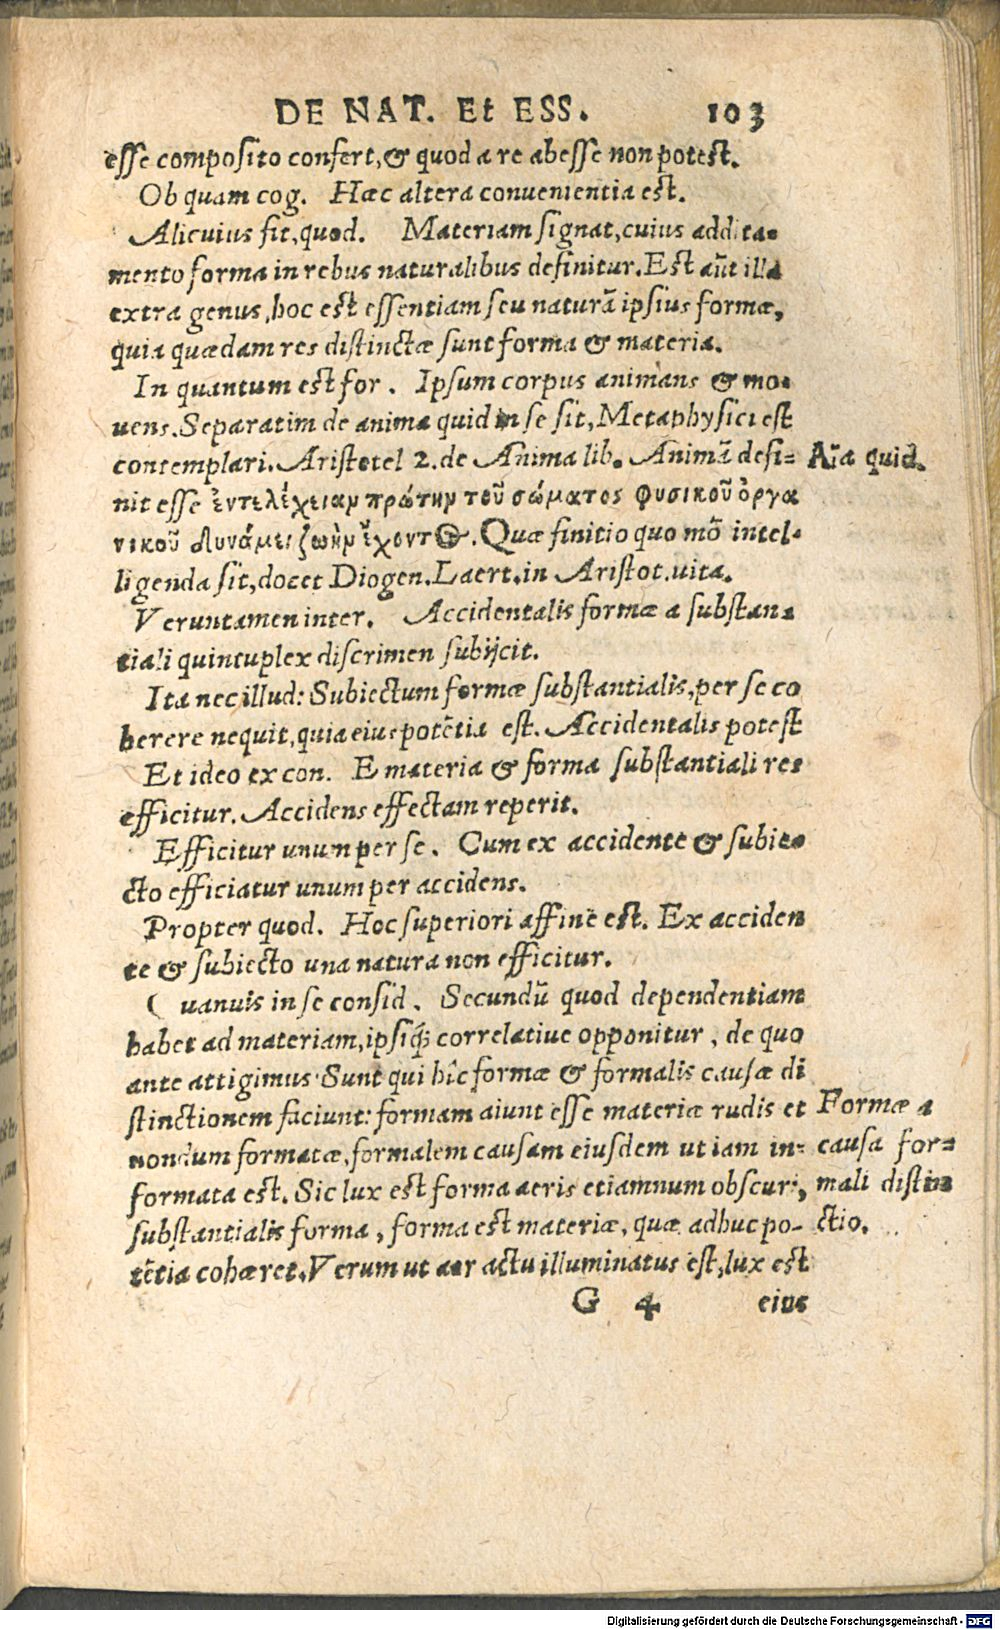 DE NAT. Et ESS. 103
esse composito confert, & quod a re abesse non potest.
Ob quam cog. Hæc altera convenientia est.
Alicuius sit, quod. Materiam signat, cuius addita-
mento forma in rebus naturalibus definitur. Est aūt illa
extra genus, hoc est essentiam seu naturā ipsius formæ,
quia quædam res distinctæ sunt forma & materia.
In quantum est for. Ipsum corpus animans & mo-
uens. Separatim de anima quid in se sit, Metaphysici est
contemplari. Aristotel 2. de Anima lib. Animā defi-
Aĩa quid.
nit esse ἐντελέχειαν πρώτην τοῦ σώματος φυσικοῦ ὀργα
νικοῦ δυνάμει ζωὴν ἔχοντος. Quæ finitio quo mō intel-
ligenda sit, docet Diogen. Laert. in Aristot. uita.
Veruntamen inter. Accidentalis formæ a substan-
tiali quintuplex discrimen subijcit.
Ita nec illud: Subiectum formæ substantialis, per se co
herere nequit, quia eius potētia est. Accidentalis potest
Et ideo ex con. E materia & forma substantiali res
efficitur. Accidens effectam reperit.
Efficitur unum per se. Cum ex accidente & subie-
cto efficiatur unum per accidens.
Propter quod. Hoc superiori affine est. Ex acciden
te & subiecto una natura non efficitur.
( uanuis in se consid. Secundū quod dependentiam
habet ad materiam, ipsiq; correlatiue opponitur, de quo
ante attigimus. Sunt qui hîc formæ & formalis causæ di
stinctionem faciunt: formam aiunt esse materiæ rudis et
Formæ a
nondum formatæ, formalem causam eiusdem ut iam in-
causa for-
formata est. Sic lux est forma aeris etiamnum obscuri,
mali distin
substantialis forma, forma est materiæ, quæ adhuc po-
ctio.
tētia cohæret. Verum ut aer actu illuminatus est, lux est
G 4 eius
Digitalisierung gefördert durch die Deutsche Forschungsgemeinschaft - DFG